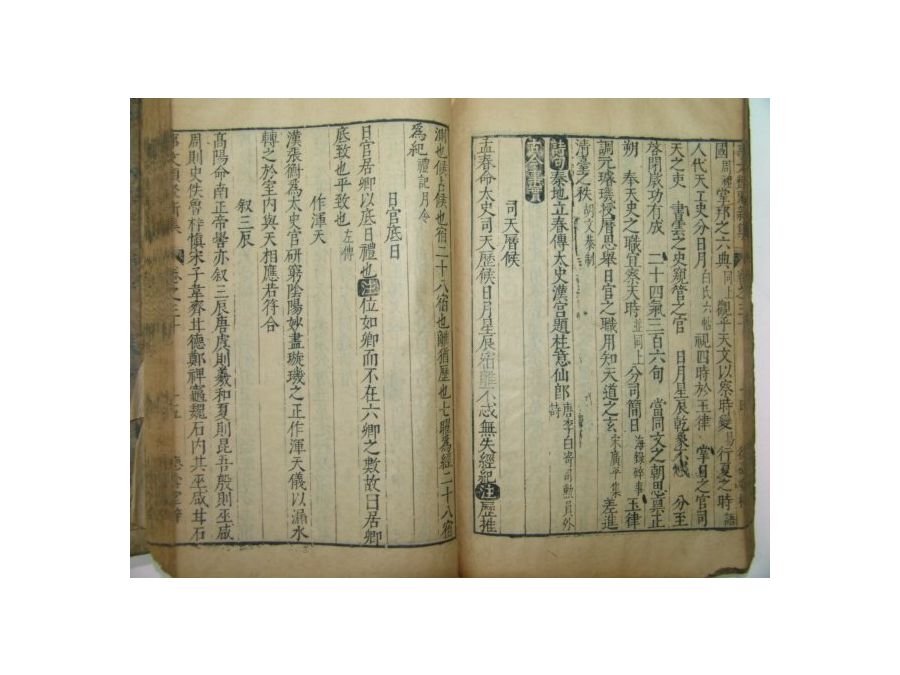 國周禮掌邦之六典同上觀乎天文以察時變易行夏之時語
人代天工史分日月白氏六帖視四時於玉律 掌日之官司
天之吏 書雲之史觀管之官 日月星辰乾象不忒 分至
啓閉歲功有成 二十四氣三百六旬 當同文之朝思稟正
朔 奉天史之職宜察天時並同上分司簡日海錄碎事玉律
調元璿璣授曆思舉日官之職用知天道之玄宋廣平集差進
清臺之秩胡文恭制
詩句秦地立春傳太史漢宮題柱憶仙郎唐李白寄司勳員外詩
古今事實
司天曆候
孟春命太史司天歷候日月星辰宿離不忒無失經紀注歷推
測也候占候也宿二十八宿也離猶歷也七曜爲經二十八宿
爲紀禮記月令
日官底日
日官居卿以底日禮也注位如卿而不在六卿之數故曰居卿
底致也平致也左傳
作渾天
漢張衡爲太史官研窮陰陽妙盡璇璣之正作渾天儀以漏水
轉之於室內與天相應若符合
叙三辰
高陽命南正帝嚳亦叙三辰唐虞則羲和夏則昆吾殷則巫咸
周則史佚魯梓慎宋子韋齊甘德鄭裨竈魏石內其巫咸甘石